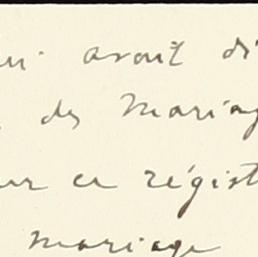 ui avait di
des mariag
ur ce régist
mariage